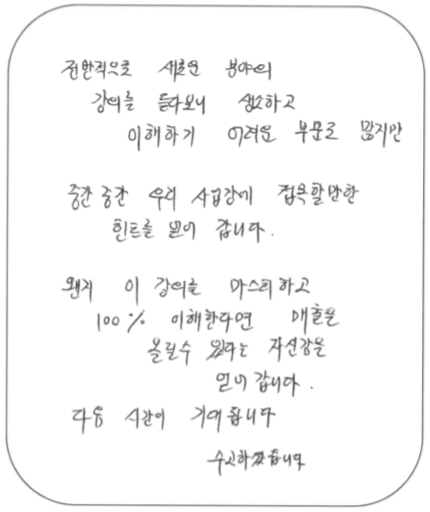 전반적으로 새로운 분야의
강의를 듣다보니 생소하고
이해하기 어려운 부문도 많지만
중간중간 우리 사업장에 접목할만한
힌트를 얻어 갑니다.
왠지 이 강의를 마스터하고
100% 이해한다면 매출을
올릴수 있다는 자신감을
얻어 갑니다.
다음 시간이 기대됩니다
수고하셨습니다